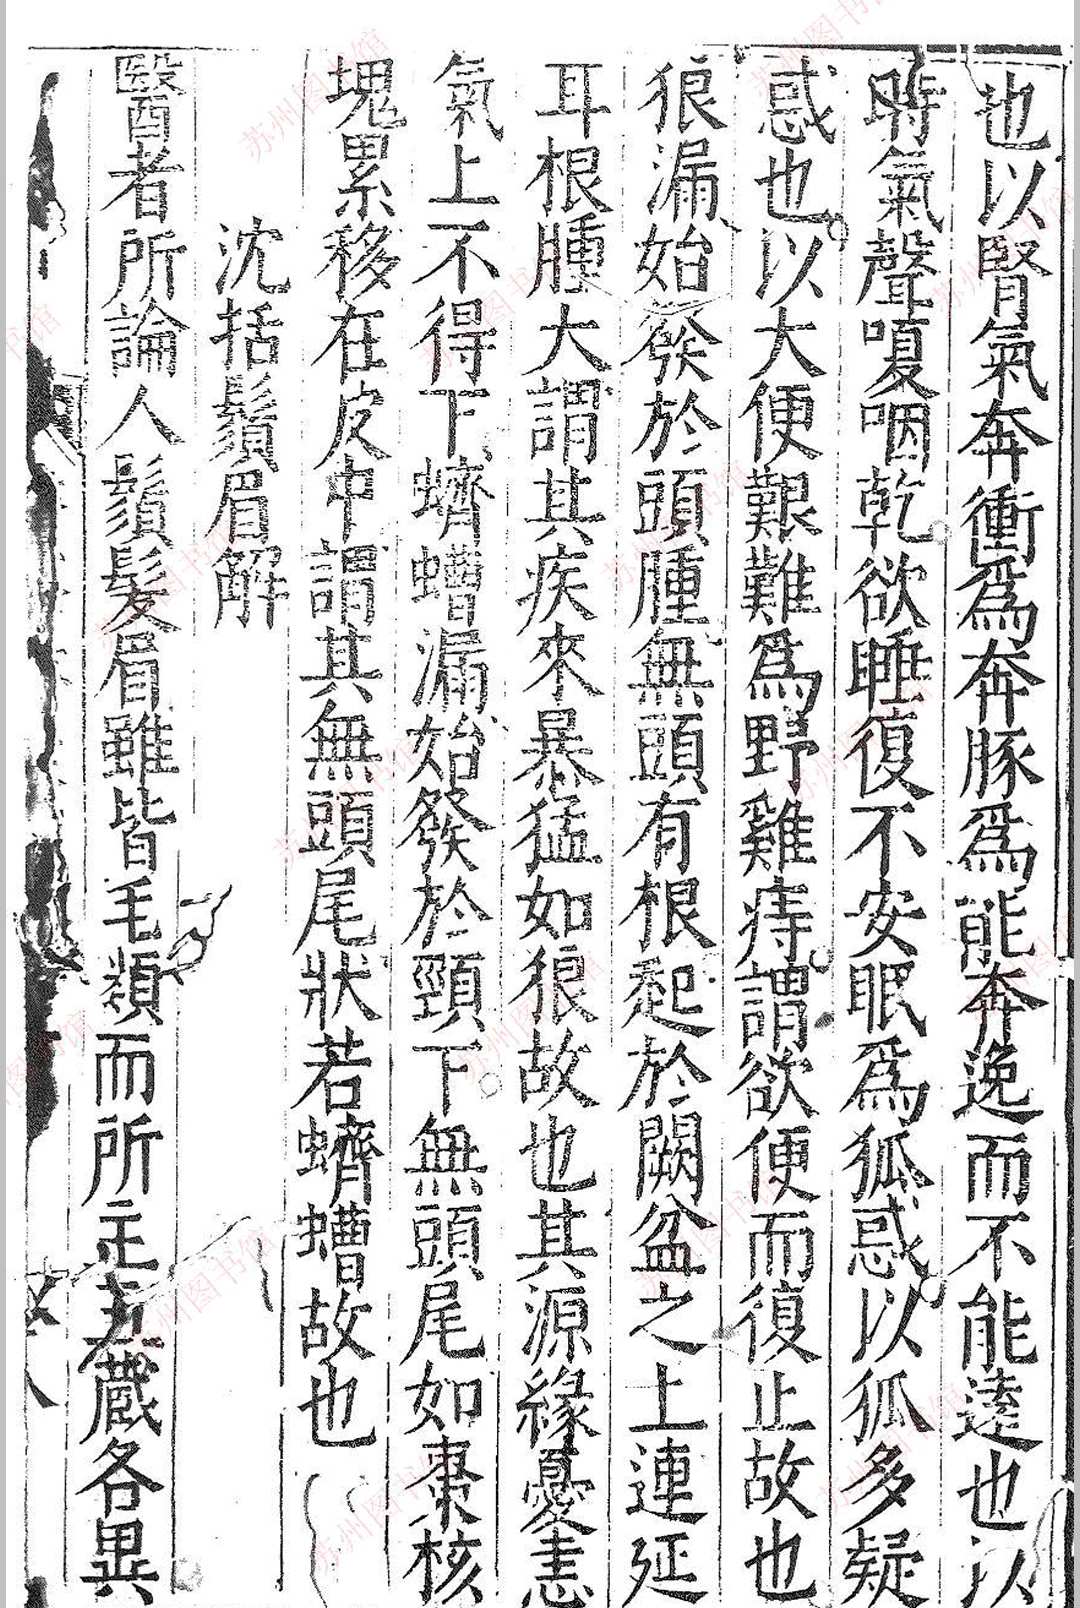 也以腎氣奔衝爲奔豚爲能奔逸而不能遠也以
時氣聲嗄咽乾欲睡復不安眠爲狐惑以狐多疑
惑也以大便艱難爲野雞痔謂欲便而復止故也
狼漏始發於頭腫無頭有根起於闕盆之上連延
耳根腫大謂其疾來暴猛如狼故也其源緣憂恚
氣上不得下蠐螬漏始發於頸下無頭尾如棗核
塊累移在皮中謂其無頭尾狀若蠐螬故也
沈括鬚眉解
醫者所論人鬚髮眉雖皆毛類而所主五藏各異